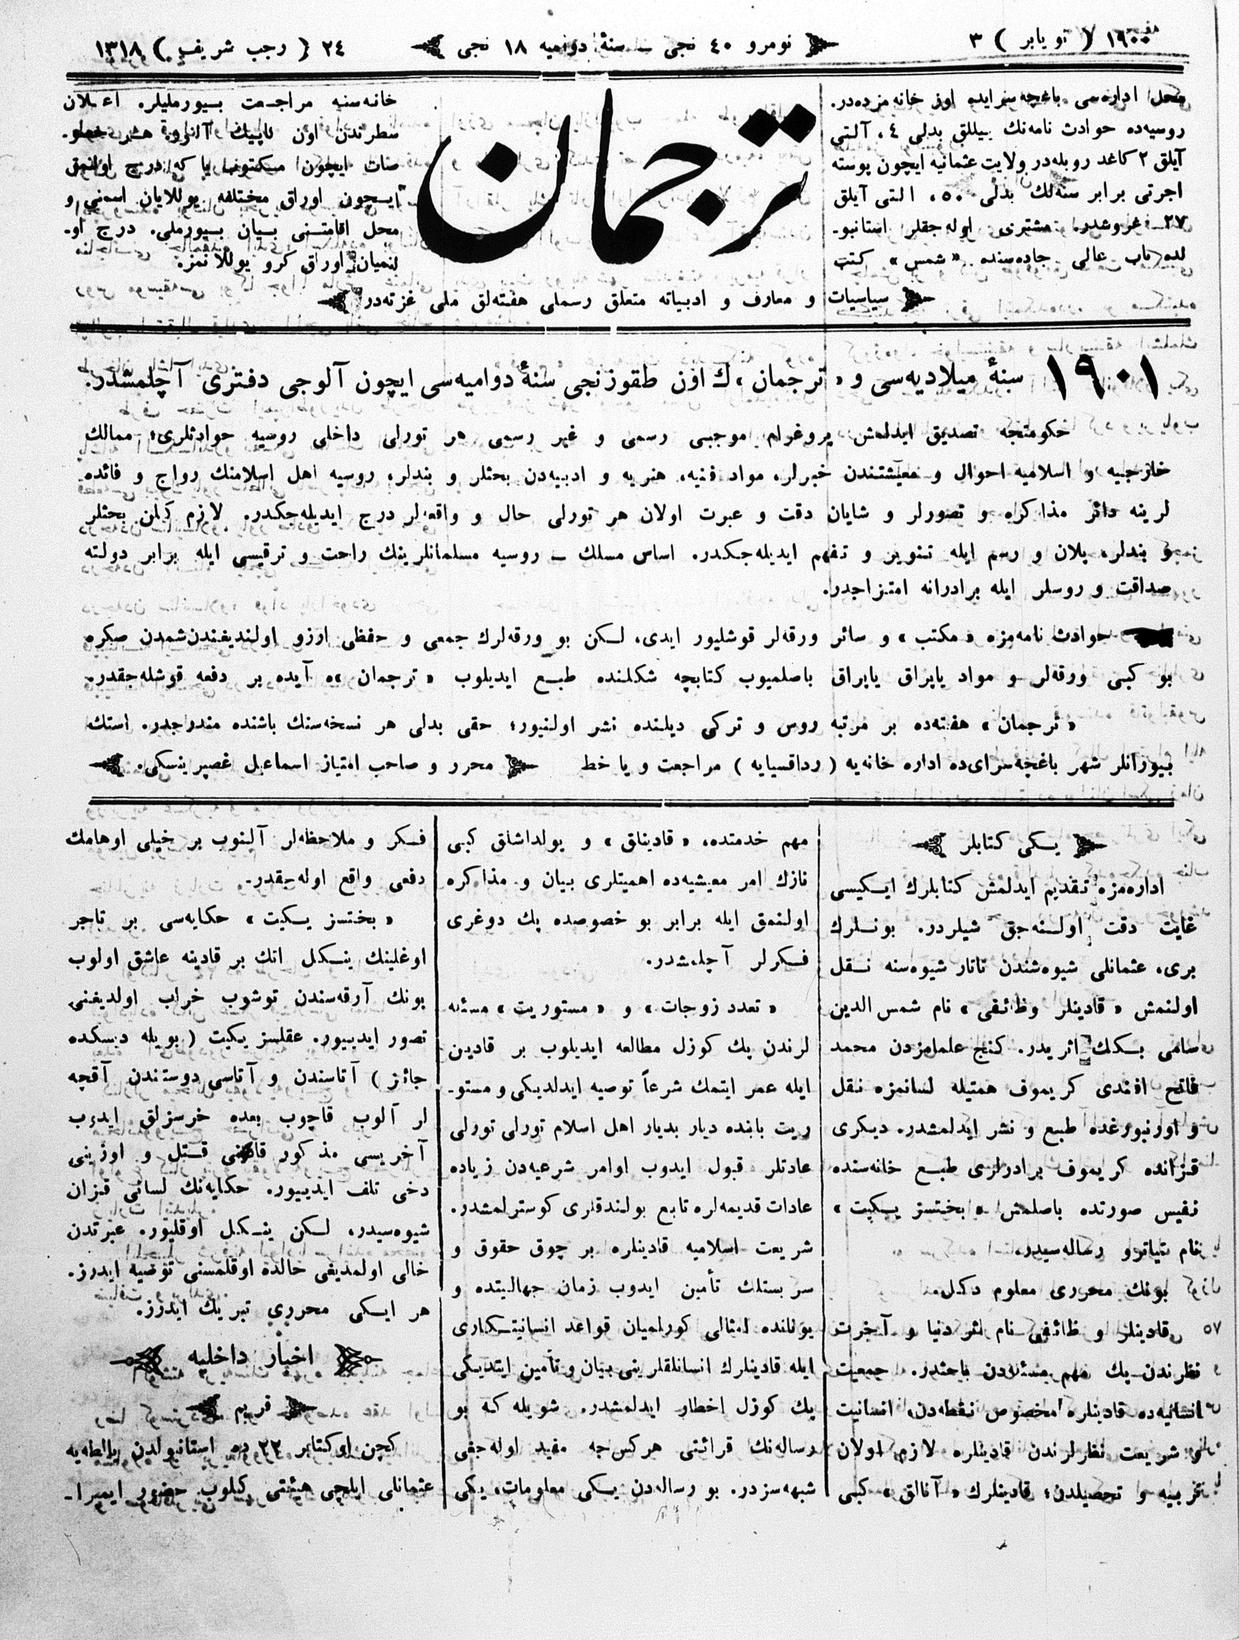 ١٩٠٠ ( نويابر ) ٣
نومرو ٤٠ نجى ــ سنهٔ دوٰميه ١٨ نجى
٢٤ ( رجب شريف ) ١٣١٨
محل اداره‌سى باغچه‌سرايده اوز خانه مزده‌در.
روسيه‌ده حوادث نامه‌نك ييللق بدلى ٤، آلتى
آيلق ٢ كاغد روبله‌در ولايت عثمانيه ايچون پوسته
اجرتى برابر سنه‌لك بدلى ٥٠، التى آيلق
٢٧ غروشدر. مشترى اوله‌جقلر استانبو-
لده باب عالى جاده‌سنده «شمس» كتب
ترجمان
خانه‌سنه مراجعت بيورمليلر. اعلان
سطرندن اون
محل اقامتنى بيان بيورملى. درج او-
لنميان اوراق كرو يوللانمز.
سياسيات و معارف و ادبياته متعلق رسملى هفته‌لق ملى غزته‌در
١٩٠١ سنهٔ ميلاديه‌سى و «ترجمان»ك اون طقوزنجى سنهٔ دواميه‌سى ايچون آلوجى دفترى آچلمشدر.
حكومتجه تصديق ايدلمش پروغرام موجبى رسمى و غير رسمى هر تورلى داخلى روسيه حوادثلرى؛ ممالك
خارجيه و اسلاميه احوال و معيشتندن خبرلر، مواد فنيه، هنريه و ادبيه‌دن بحثلر و بندلر، روسيه اهل اسلامنك رواج و فائده
لرينه دائر مذاكره و تصورلر و شايان دقت و عبرت اولان هر تورلى حال و واقعه‌لر درج ايديله‌جكدر. لازم كلن بحثلر
و بندلر، پلان و رسم ايله تنوير و تفهم ايديله‌جكدر. اساس مسلك ــ روسيه مسلمانلرينك راحت و ترقيسى ايله برابر دولته
صداقت و روسلر ايله برادرانه امتزاجدر.
حوادث نامه‌مزه «مكتب» و سائر ورقه‌لر قوشليور ايدى، لكن بو ورقه‌لرك جمعى و حفظى ارزو اولنديغندن‌شمدن صكره
بو كبى ورقه‌لر و مواد ياپراق ياپراق باصلميوب كتابچه شكلنده طبع ايديلوب «ترجمان»ه آيده بر دفعه قوشله‌جقدر.
«ترجمان» هفته‌ده بر مرتبه روس و تركى ديلنده نشر اولنيور؛ حقى بدلى هر نسخه‌سنك باشنده مندرجدر. استك
بيورانلر شهر باغچه‌سراى‌ده اداره خانه‌يه ( رداقسيايه ) مراجعت و يا خط
محرر و صاحب امتياز اسماعيل غصپرينسكى.
يكى كتابلر
اداره‌مزه تقديم ايدلمش كتابلرك ايكيسى
غايت دقت اولنه‌جق شيلردر. بونلرك
برى، عثمانلى شيوه‌شندن تاتار شيوه‌سنه نقل
اولنمش «قادينلر وظائفى» نام شمس الدين
سامى بكك اثريدر. كنج علمامزدن محمد
فاتح افندى كريموف همتيله لسانمزه نقل
و اورنبورغده طبع و نشر ايدلمشدر. ديكرى
قزانده كريموف برادرلرى طبع خانه‌سنده
نفيس صورتده باصلمش «بختسز يكيت»
نام تياترو رساله‌سيدر.
بونك محررى معلوم دكل.
قادينلر وظائفى نام اثر دنيا و آخرت
نظرندن‌پك مهم مسئله‌دن باحثدر. جمعيت
انسانيه‌ده قادينلره مخصوص نقطه‌دن، انسانيت
و شريعت نظرلرندن قادينلره لازم اولان
تربيه و تحصيلدن؛ قادينلرك «آنالق» كبى
مهم خدمتده، «قادينلق» و يولداشلق كبى
نازك امر معيشيه‌ده اهميتلرى بيان و مذاكره
اولنمق ايله برابر بو خصوصده پك دوغرى
فكرلر آچلمشدر.
«تعدد زوجات» و «مستوريت» مسئله
لرندن پك كوزل مطالعه ايديلوب بر قادين
ايله عمر ايتمك شرعاً توصيه ايدلديكى و مستو-
ريت بابنده ديار بديار اهل اسلام تورلى تورلى
عادتلر قبول ايدوب اوامر شرعيه‌دن زياده
عادات قديمه‌لره تابع بولندقلرى كوسترلمشدر.
شريعت اسلاميه قادينلره بر چوق حقوق و
سربستلك تأمين ايدوب زمان جهالتده و
يونلنده امثالى كورلميان قواعد انسانيتكارى
ايله قادينلرك انسانلقلرينى بيان و تأمين ايتديكى
پك كوزل اخطار ايدلمشدر. شويله كه بو
رساله‌نك قرائتى هركس‌جه مفيد اوله‌جغى
شبهه‌سزدر. بو رساله‌دن يكى معلومات، يكى
فكر و ملاحظه‌لر آلنوب بر خيلى اوهامك
دفعى واقع اوله‌جقدر.
«بختسز يكيت» حكايه‌سى بر تاجر
اوغلينك ينكل انك بر قادينه عاشق اولوب
بونك آرقه‌سندن توشوب خراب اولديغنى
تصور ايدييور. عقلسز يكيت ( بويله ديسكده
جائز ) آتاسندن و آتاسى دوستندن آقچه
لر آلوب قاچوب بعده خرسزلق ايدوب
آخريسى مذكور قادينى قتل و اوزينى
دخى تلف ايدييور. حكايه‌نك لسانى قزان
شيوه‌سيدر، لكن ينكل اوقليور. عبرتدن
خالى اولمديغى حالده اوقلمسنى توصيه ايدرز.
هر ايكى محررى تبريك ايدرز.
اخبار داخليه
قريم
كچن اوكتابر ٢٢ ده استانبولدن يالطه‌يه
عثمانلى ايلچى هيئتى كيلوب حضور ايمپرا-